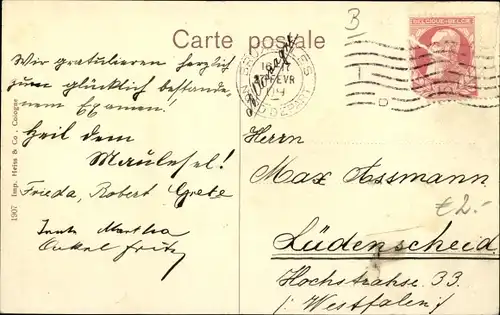 Carte postale
BELGIQUE-BELGIË
Wir gratulieren herzlich
zum glücklich bestande-
nem Examen!
Heil dem
Maulesel!
Frieda, Robert Grete
Tante Martha
Onkel Fritz
1907 Imp. Heiss & Co, Cologne
DEPART
Herrn
Max Assmann
€2.-
Lüdenscheid
Hochstrahse 33.
/: Westfalen/
B